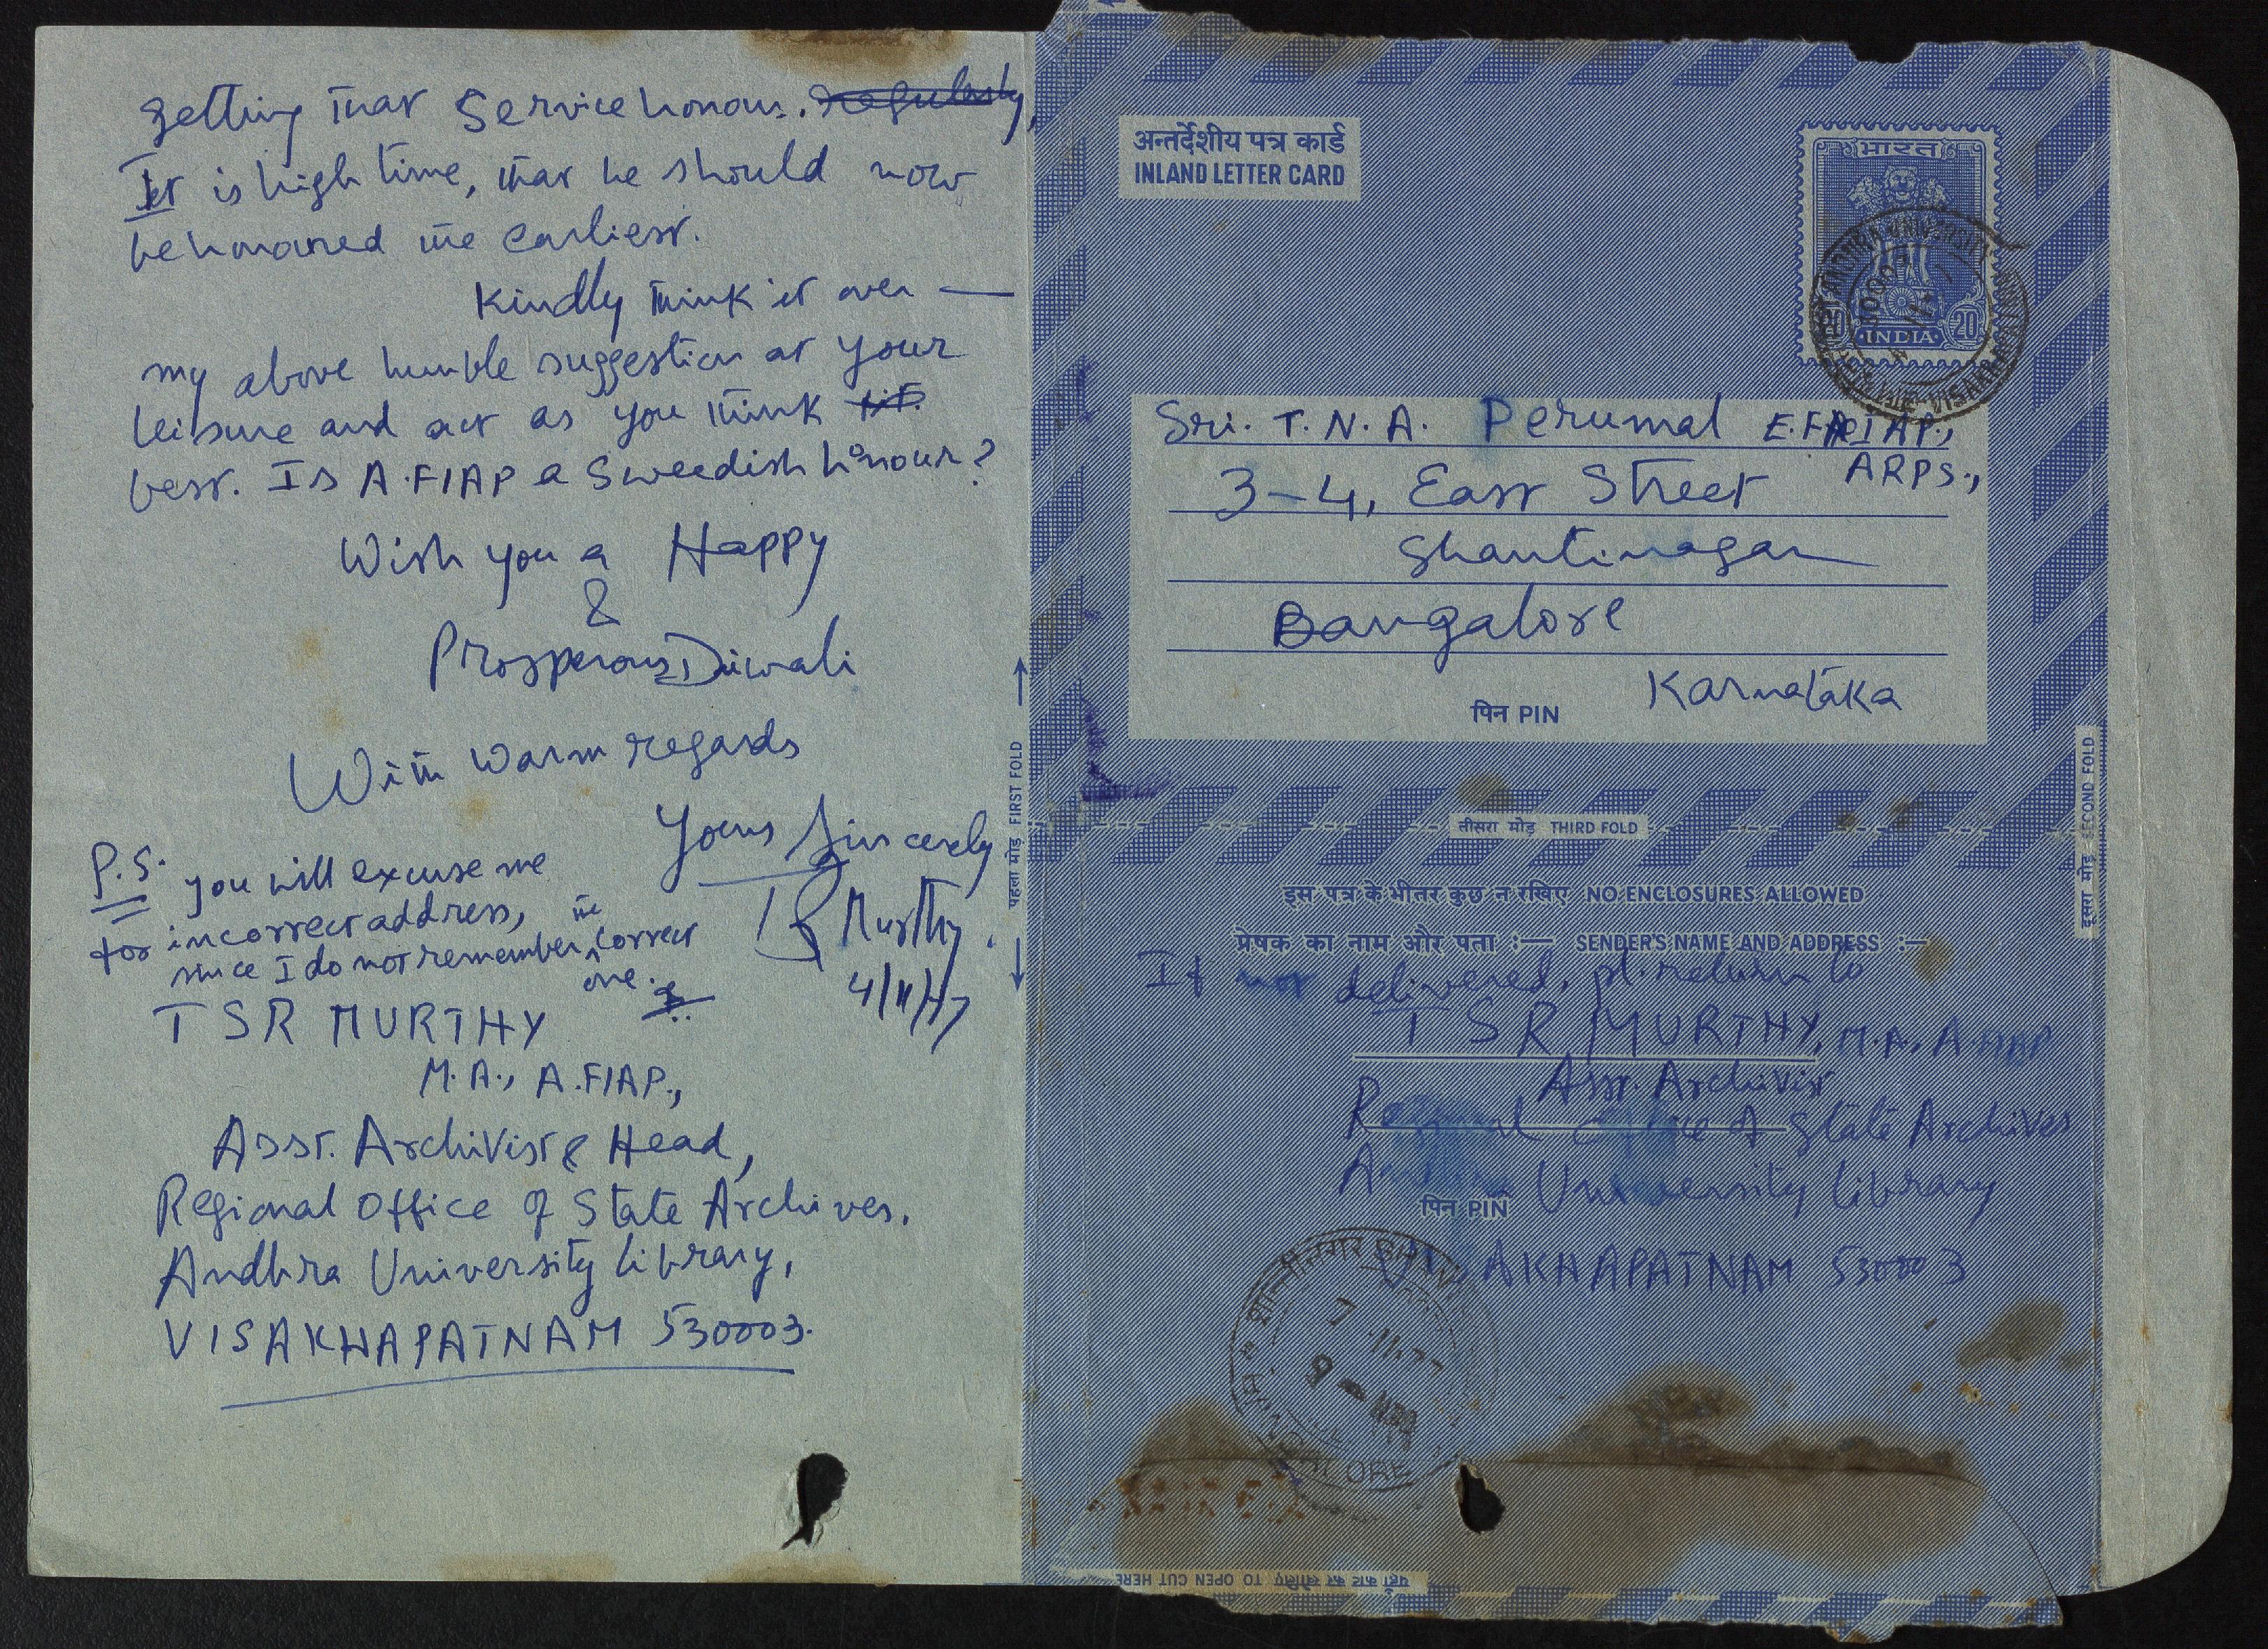 getting that Service honour. regularly,
It is high time, that he should now
be honoured the earliest.
Kindly think it over —
my above humble suggestion at your
leisure and act as you think fit.
best. Is A.FIAP a Sweedish honour?
Wish you a Happy
&
Prosperous Diwali
With warm regards
Yours Sincerely
TSR Murthy.
4/11/77
P.S. you will excuse me
for incorrect address,
since I do not remember the correct
one.
T S R MURTHY
M.A., A.FIAP.,
Asst. Archivist & Head,
Regional Office of State Archives.
Andhra University Library,
VISAKHAPATNAM 530003.
पहला मोड़ FIRST FOLD
अन्तर्देशीय पत्र कार्ड
INLAND LETTER CARD
भारत
20 20
INDIA
Sri. T. N. A. Perumal E.FIAP.,
ARPS.,
3-4, East Street
Shantinagar
Bangalore
Karnataka
पिन PIN
तीसरा मोड़ THIRD FOLD
दूसरा मोड़ SECOND FOLD
इस पत्र के भीतर कुछ न रखिए NO ENCLOSURES ALLOWED
प्रेषक का नाम और पता :— SENDER'S NAME AND ADDRESS :—
If not delivered, pl. return to
T S R MURTHY, M.A., A.FIAP
Asst. Archivist
Regional Office of State Archives
Andhra University Library
पिन PIN
VISAKHAPATNAM 530003
7.11.77
यहाँ काट कर खोलिए TO OPEN CUT HERE